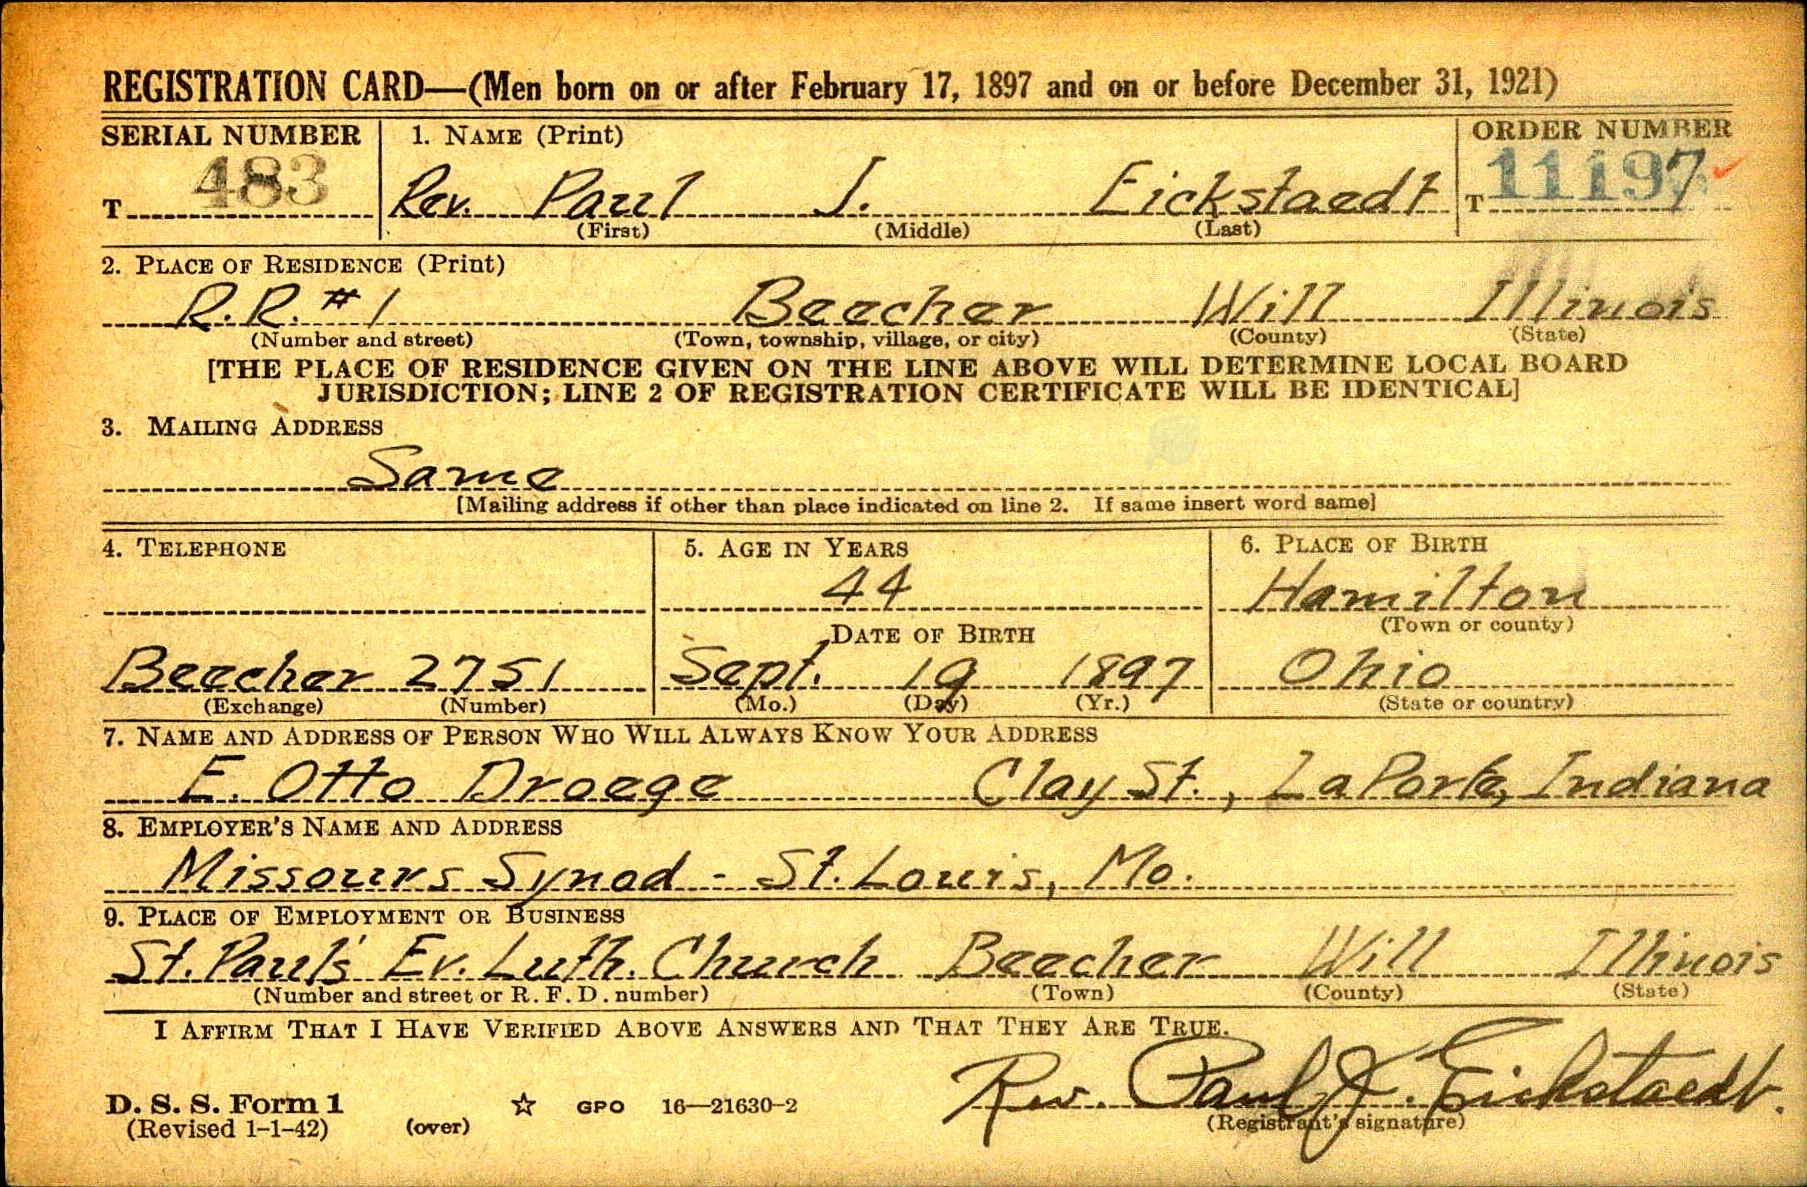 REGISTRATION CARD—(Men born on or after February 17, 1897 and on or before December 31, 1921)
SERIAL NUMBER 1. NAME (Print) ORDER NUMBER
T 483 Rev. Paul J. Eickstaedt T 11197
(First) (Middle) (Last)
2. PLACE OF RESIDENCE (Print)
R.R. #1 Beecher Will Illinois
(Number and street) (Town, township, village, or city) (County) (State)
[THE PLACE OF RESIDENCE GIVEN ON THE LINE ABOVE WILL DETERMINE LOCAL BOARD
JURISDICTION; LINE 2 OF REGISTRATION CERTIFICATE WILL BE IDENTICAL]
3. MAILING ADDRESS
Same
[Mailing address if other than place indicated on line 2. If same insert word same]
4. TELEPHONE 5. AGE IN YEARS 6. PLACE OF BIRTH
44 Hamilton
DATE OF BIRTH (Town or county)
Beecher 2751 Sept. 19 1897 Ohio
(Exchange) (Number) (Mo.) (Day) (Yr.) (State or country)
7. NAME AND ADDRESS OF PERSON WHO WILL ALWAYS KNOW YOUR ADDRESS
E. Otto Droege Clay St., La Porte, Indiana
8. EMPLOYER'S NAME AND ADDRESS
Missouri Synod - St. Louis, Mo.
9. PLACE OF EMPLOYMENT OR BUSINESS
St. Paul's Ev. Luth. Church Beecher Will Illinois
(Number and street or R. F. D. number) (Town) (County) (State)
I AFFIRM THAT I HAVE VERIFIED ABOVE ANSWERS AND THAT THEY ARE TRUE.
Rev. Paul J. Eickstaedt.
D. S. S. Form 1 GPO 16—21630-2 (Registrant's signature)
(Revised 1-1-42) (over)